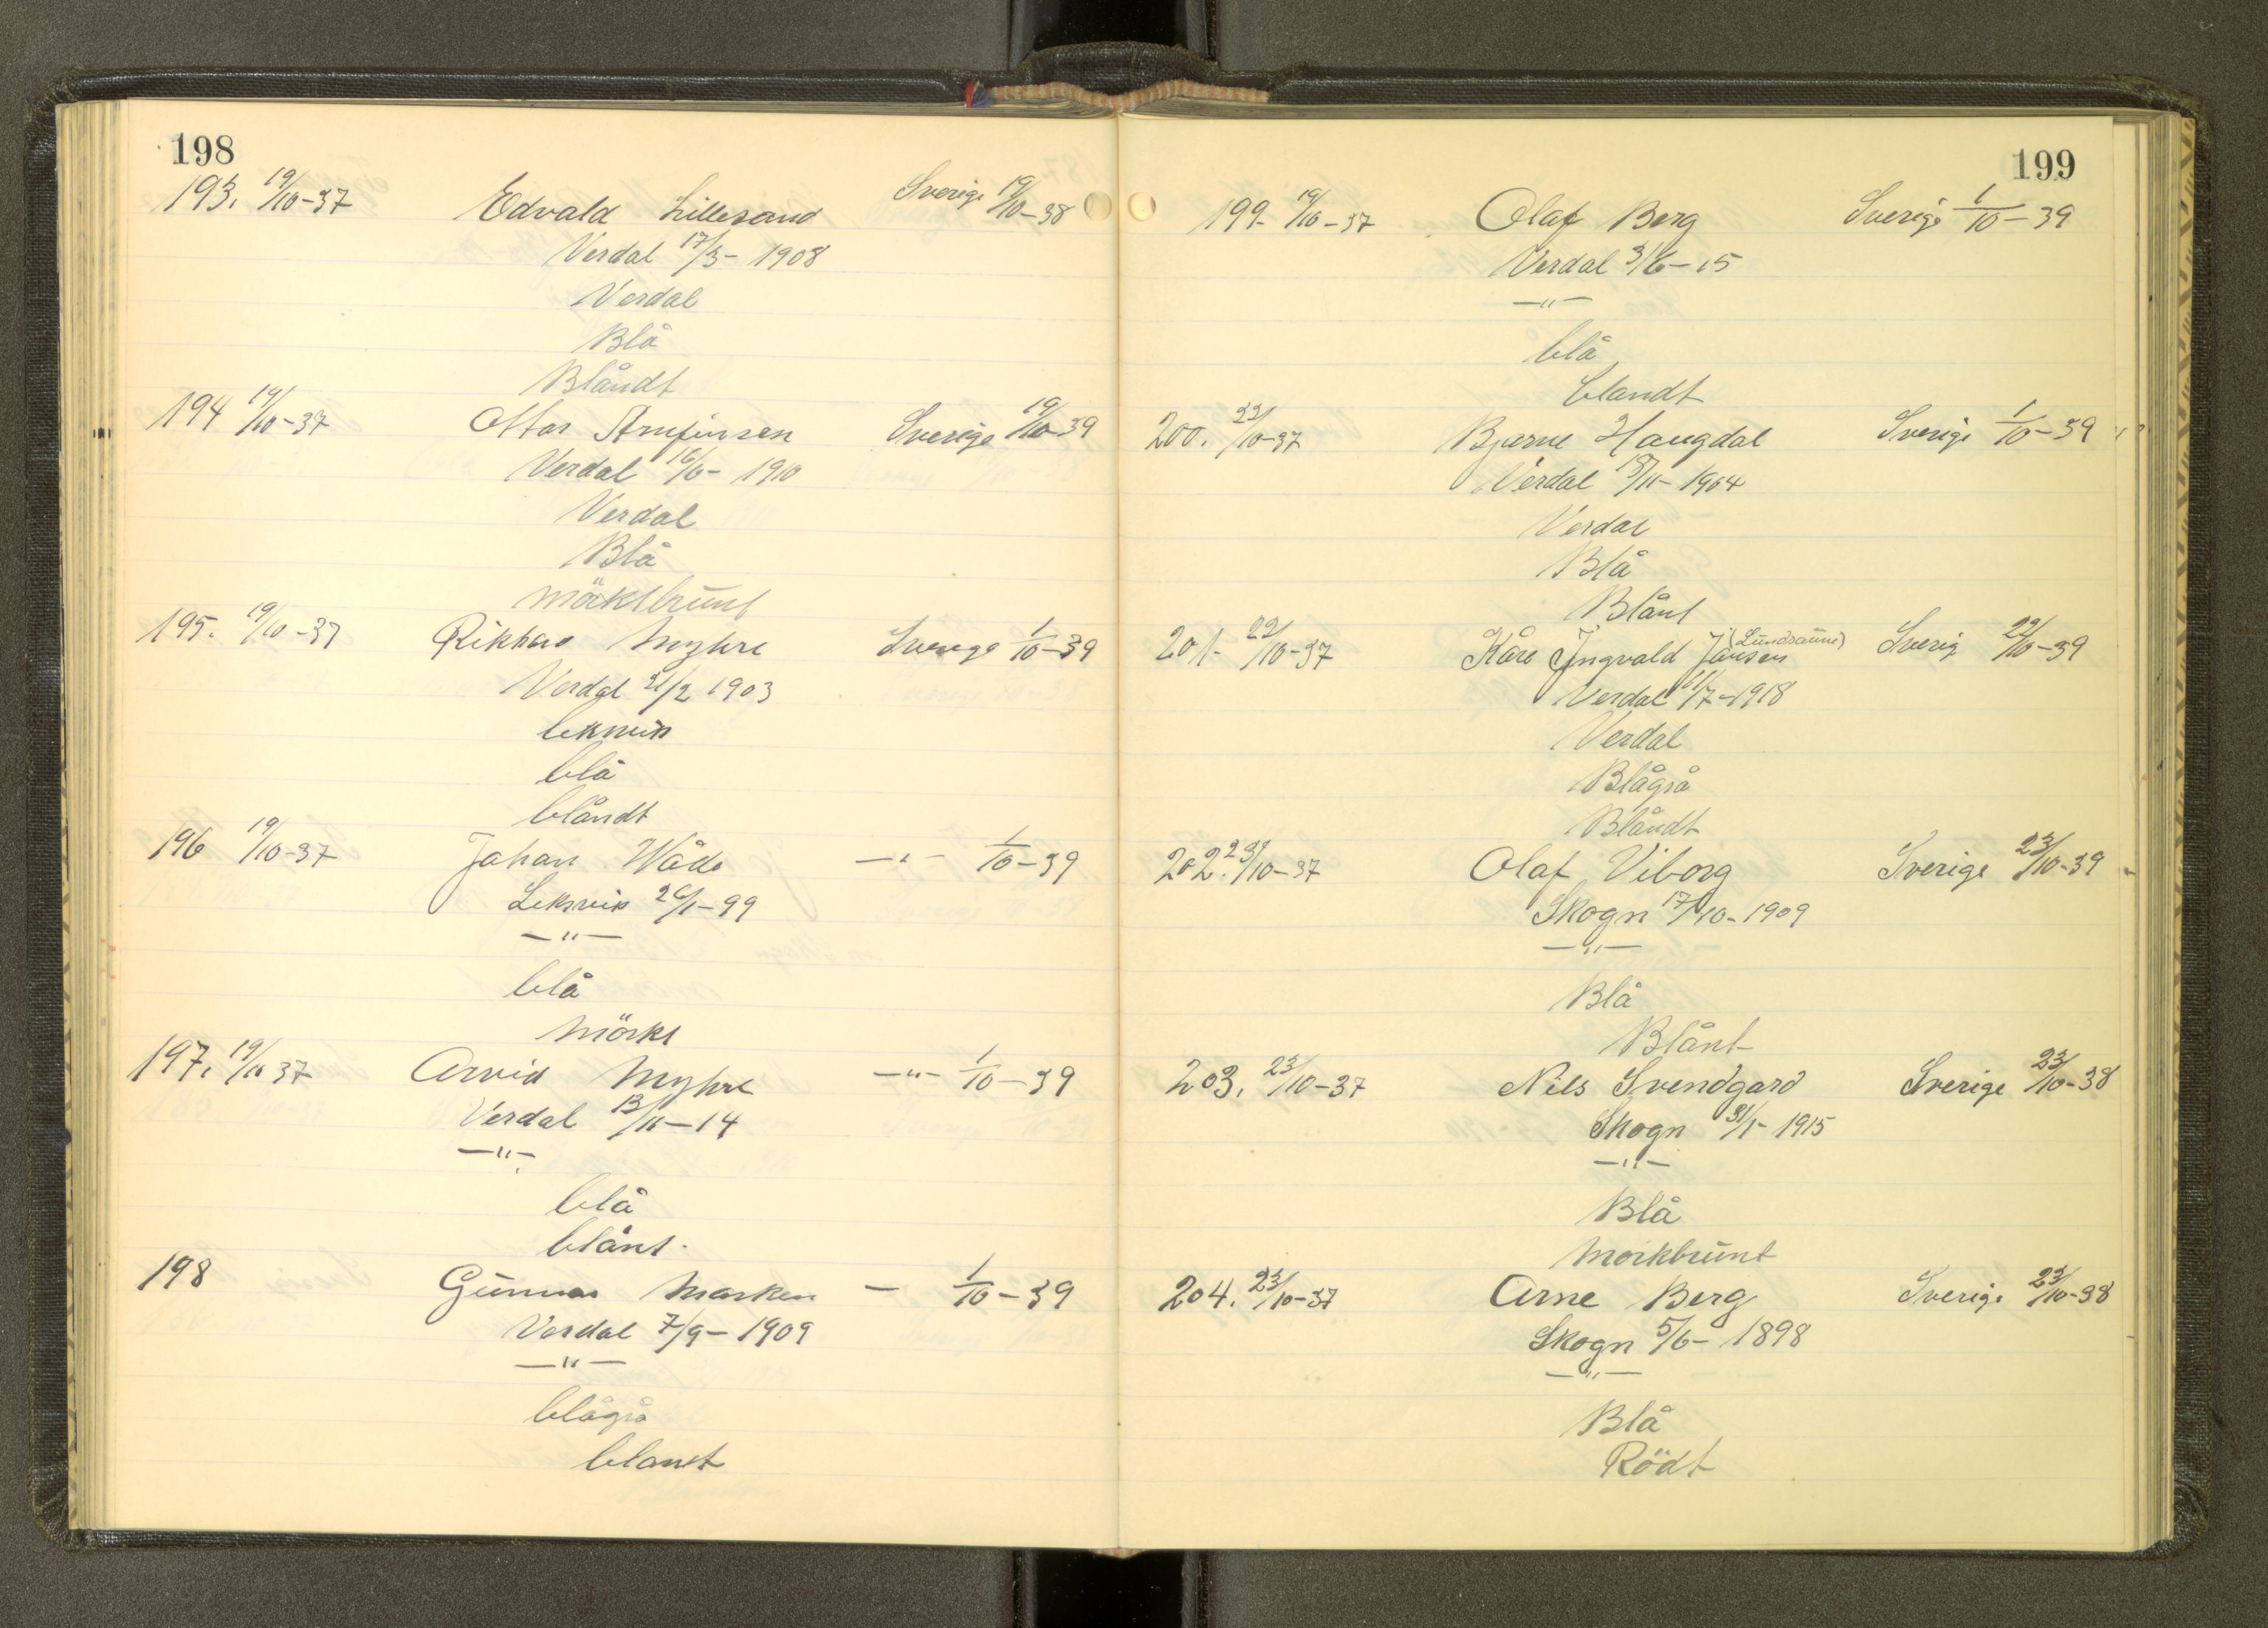 198
193. 19/10-37 Edvald Lillesand Sverige 19/10-38
Verdal 17/3- 1908
Verdal
Blå
Blåndt
194 19/10-37 Ottar Arnfinsen Sverige 19/10-39
Verdal 16/6- 1910
Verdal
Blå
mörktbrunt
195. 19/10-37 Rikhar Myhre Sverige 1/10-39
Verdal 21/2 1903
blå
blåndt
196 19/10-37 Johan Wåde -"- 1/10-39
Leksvik 26/1-99
-"-
blå
mörkt
197. 19/10 37 Arvid Myhre -"- 1/10-39
Verdal 13/11-14
-"-
blå
blånt.
198 Gunnar Marken - 1/10-39
Verdal 7/9- 1909
-"-
blågrå
blandt
199
199- 19/10-37 Olaf Berg Sverige 1/10-39
Verdal 3/6-15
-"-
blå
blandt
200. 22/10-37 Bjarne Haugdal Sverige 1/10-39
Verdal /11- 1904
Verdal
Blå
Blånt
201- 22/10-37 Kåre Ingvald Jansen (Lundsaune) Sverig 22/10-39
Verdal /7-1918
Verdal
Blågrå
Blåndt
202. 23/10-37 Olaf Viborg Sverige 23/10-39
Skogn 17/10-1909
-"-
Blå
Blånt
203. 23/10-37 Nils Svendgard Sverige 23/10-38
Skogn 31/1- 1915
-"-
Blå
morkbrunt
204. 23/10-37 Arne Berg Sverige 23/10-38
Skogn 5/6- 1898
-"-
Blå
Rödt